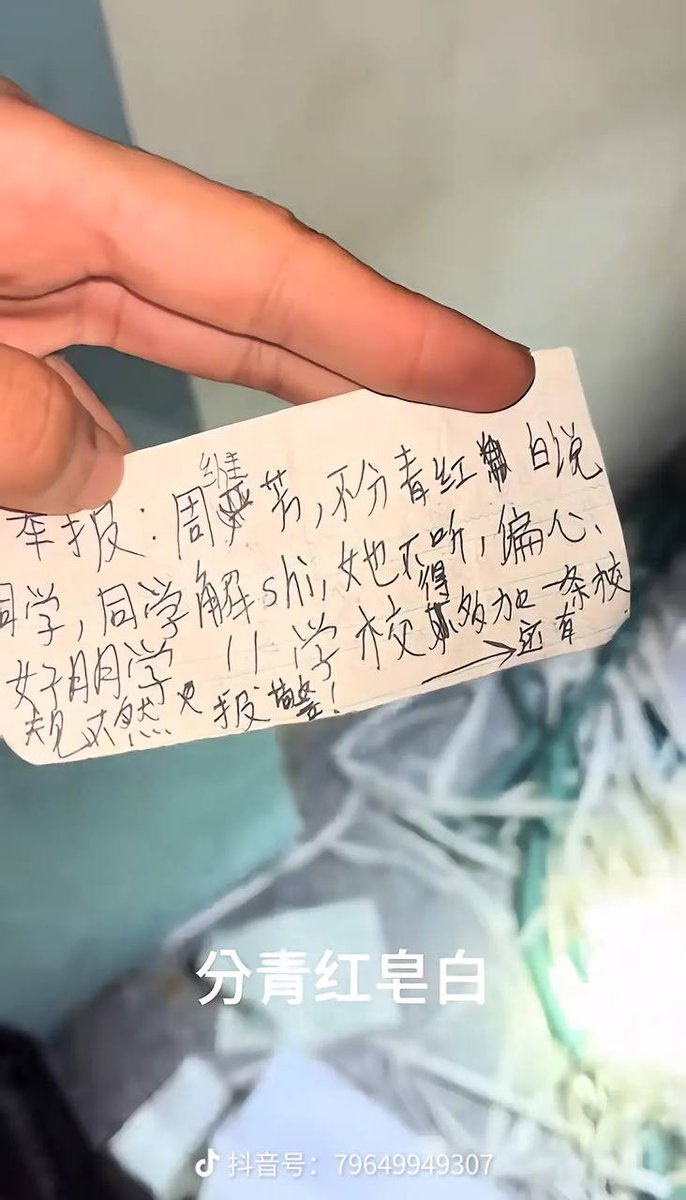 举报：周维芳，不分青红 白说
同学，同学解shi，她不听，偏心、
好朋学 11 学校得多加一条校
规不然 报警！ 还有
分青红皂白
抖音号：79649949307